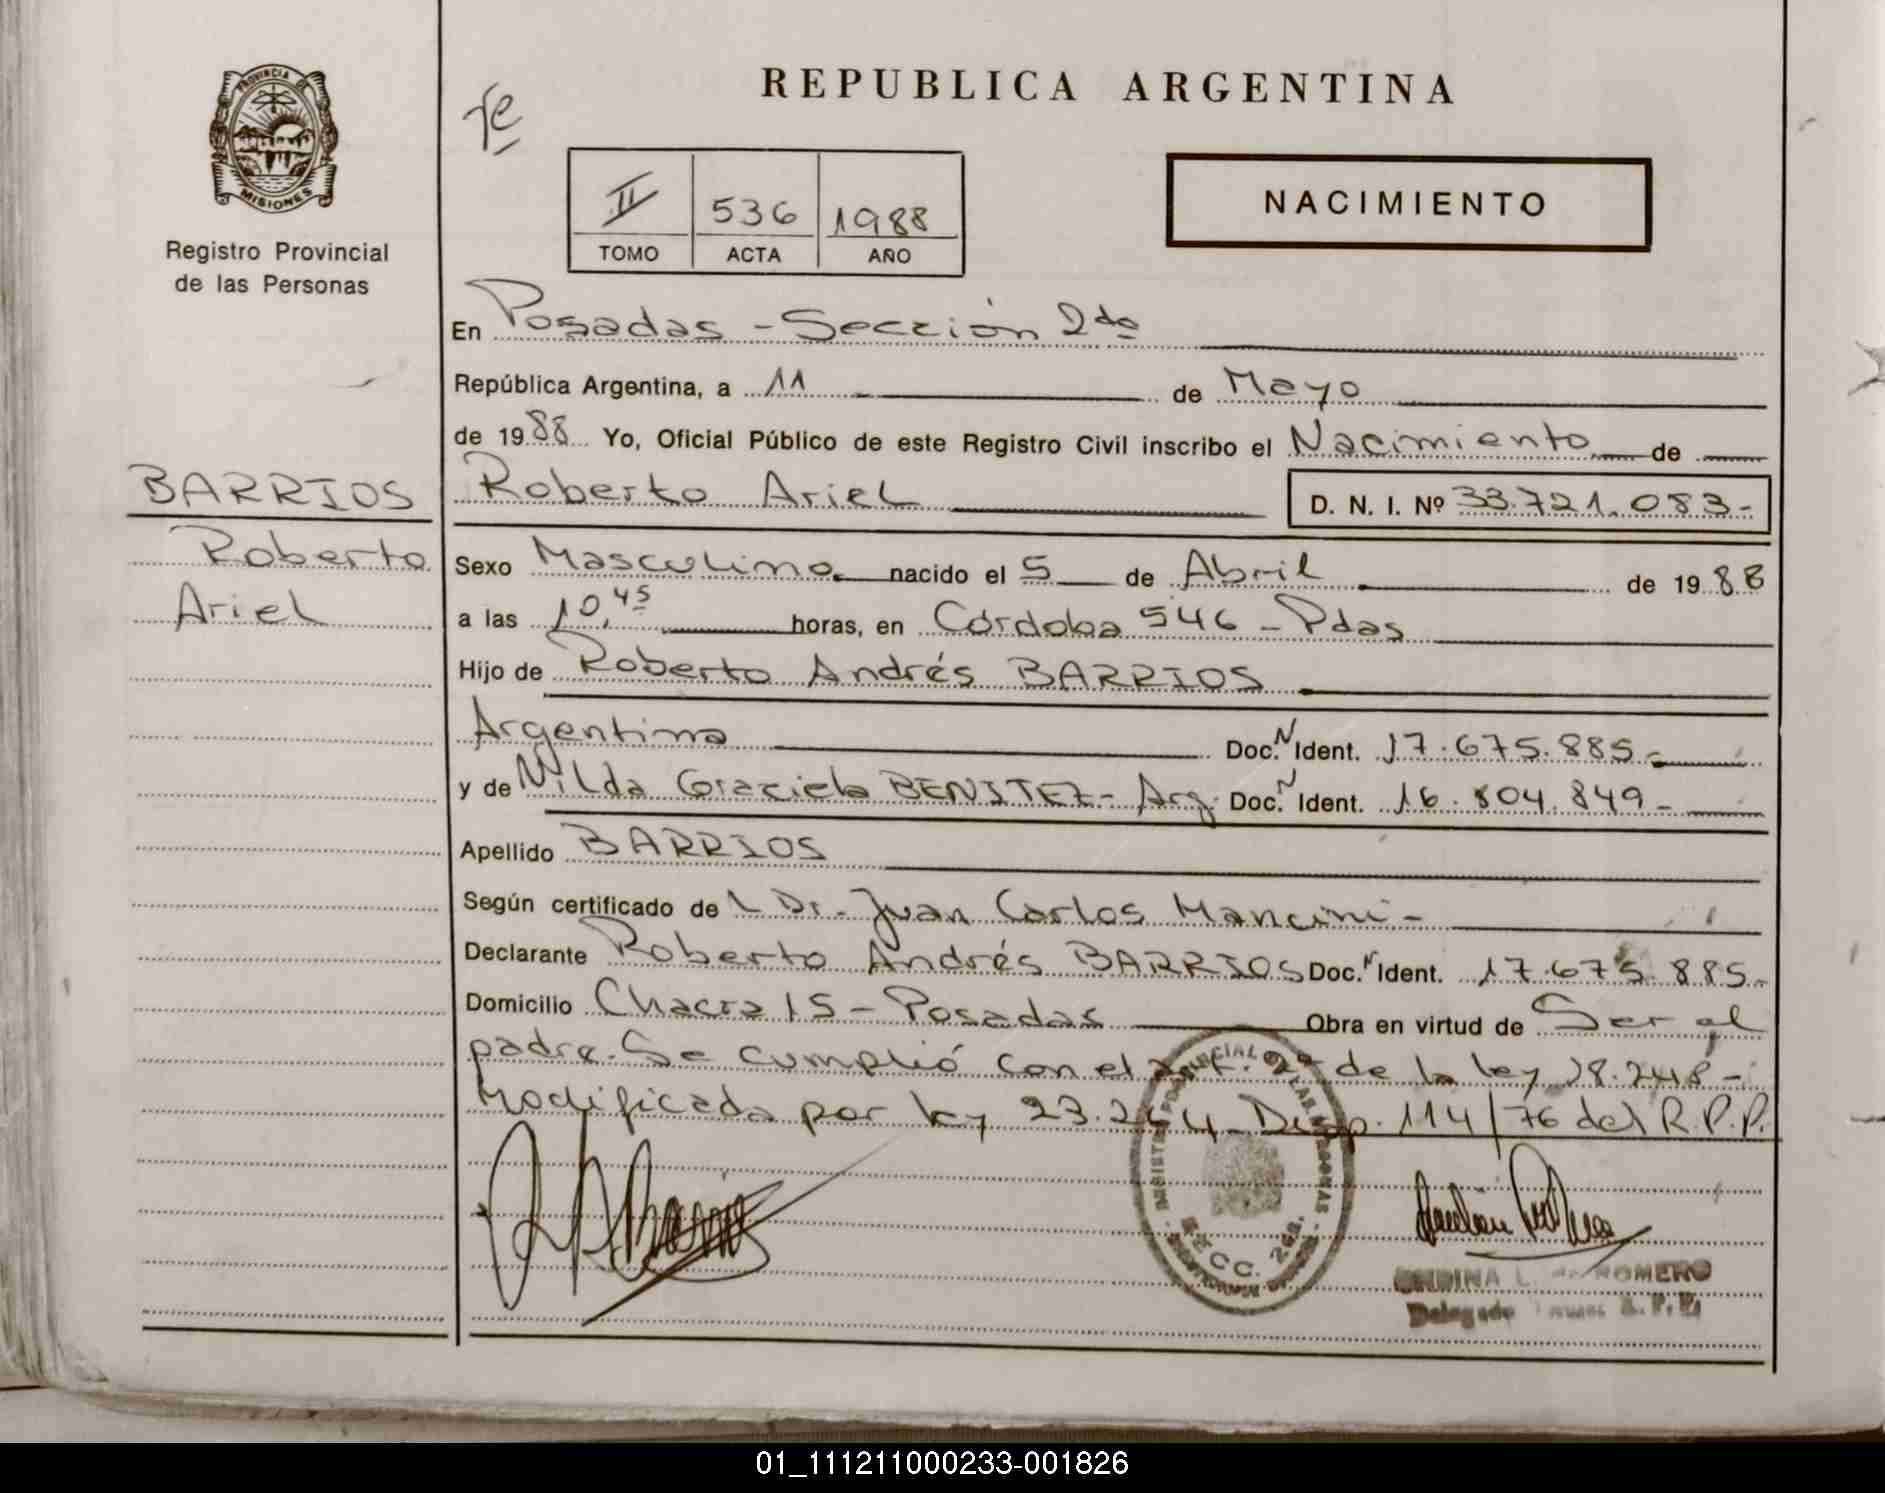 REPUBLICA ARGENTINA
PROVINCIA DE
MISIONES
Registro Provincial
de las Personas
II 536 1988
TOMO ACTA AÑO
NACIMIENTO
En Posadas - Sección 2da
República Argentina, a 11 de Mayo
de 1988 Yo, Oficial Público de este Registro Civil inscribo el Nacimiento de
BARRIOS
Roberto
Ariel
Roberto Ariel D. N. I. Nº 33.721.083-
Sexo Masculino nacido el 5 de Abril de 1988
a las 10,45 horas, en Córdoba 546 - Pdas
Hijo de Roberto Andrés BARRIOS
Argentino Doc. N Ident. 17.675.885-
y de Nilda Graciela BENITEZ - Arg. Doc. N Ident. 16.804.849-
Apellido BARRIOS
Según certificado del Dr. Juan Carlos Mancini -
Declarante Roberto Andrés BARRIOS Doc. N Ident. 17.675.885-
Domicilio Chacra 15 - Posadas Obra en virtud de Ser el
padre. Se cumplió con el Art. 2º de la ley 18.248 -
Modificada por ley 23.264 - Disp. 114/76 del R.P.P.
SECC. 2da.
L. de ROMERO
Delegado R. P. P.
01_111211000233-001826